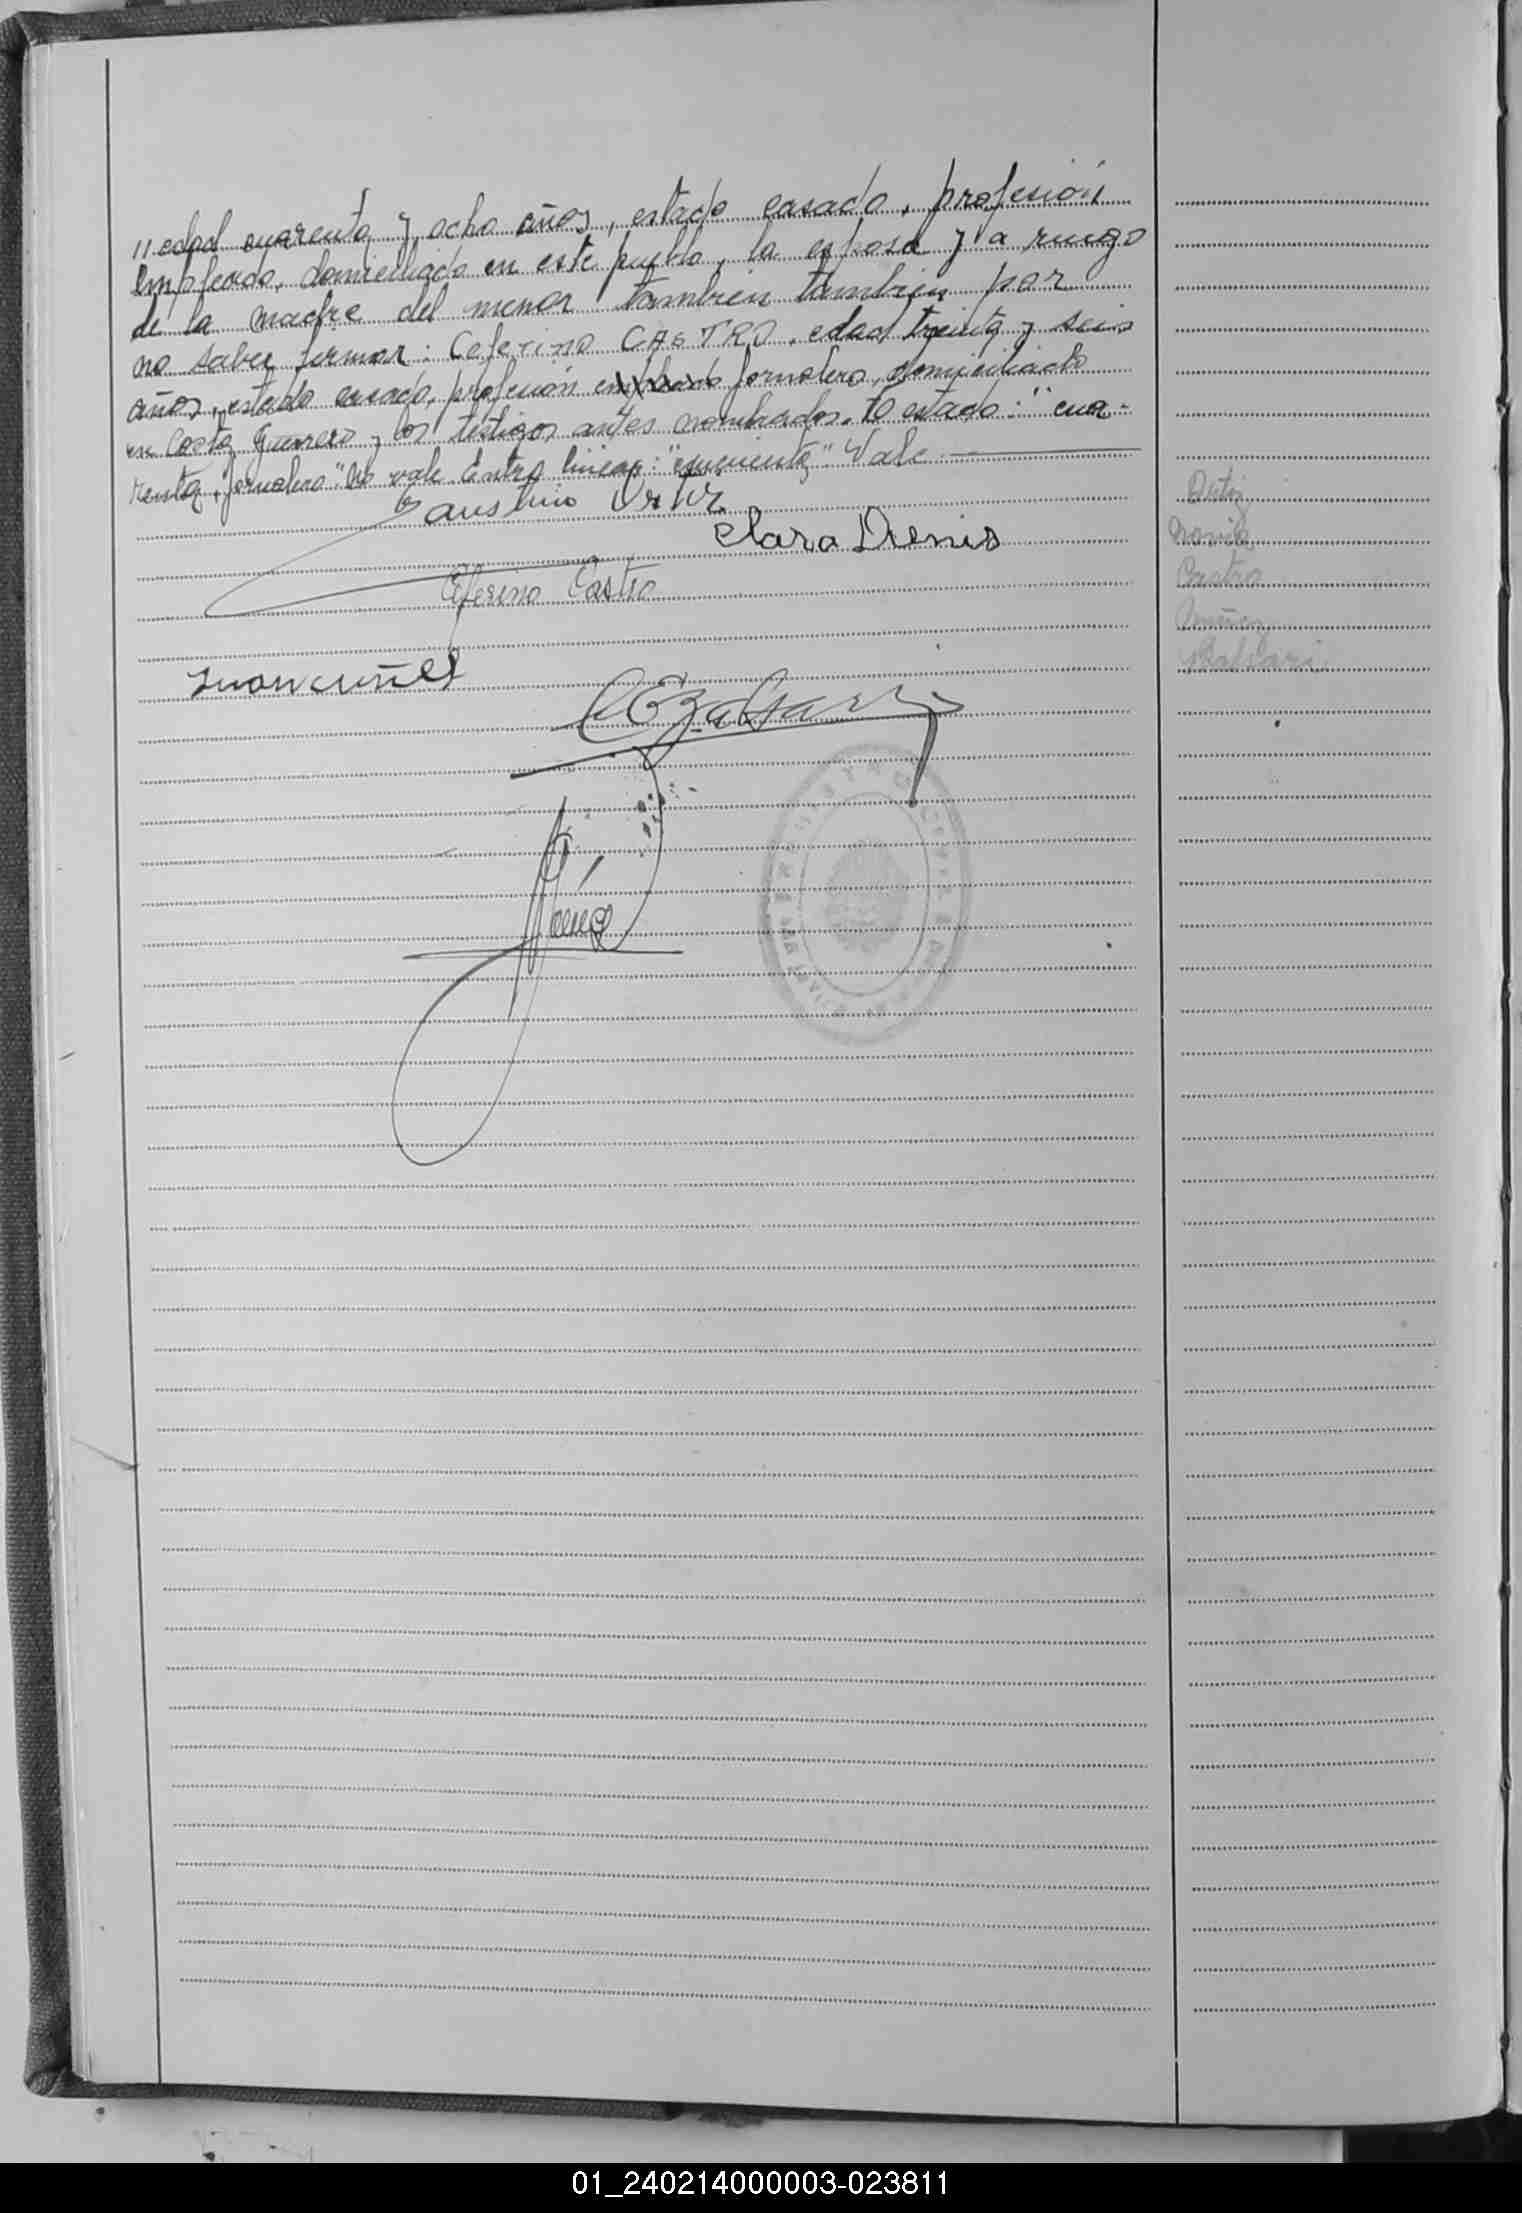 " edad cuarenta y ocho años, estado casado, profesión
empleado, domiciliado en este pueblo, la esposa y a ruego
de la madre del menor tambien tambien por
no saber firmar: Ceferino CASTRO, edad treinta y seis
años, estado casado, profesión jornalero, domiciliado
en Costa Guerrero y los testigos antes nombrados. estado: "cua-
renta, jornalero" No vale Entre lineas: Vale
Faustino Ortiz
Clara Denis
Ceferino Castro
Juan
Ortiz
Novia
Castro